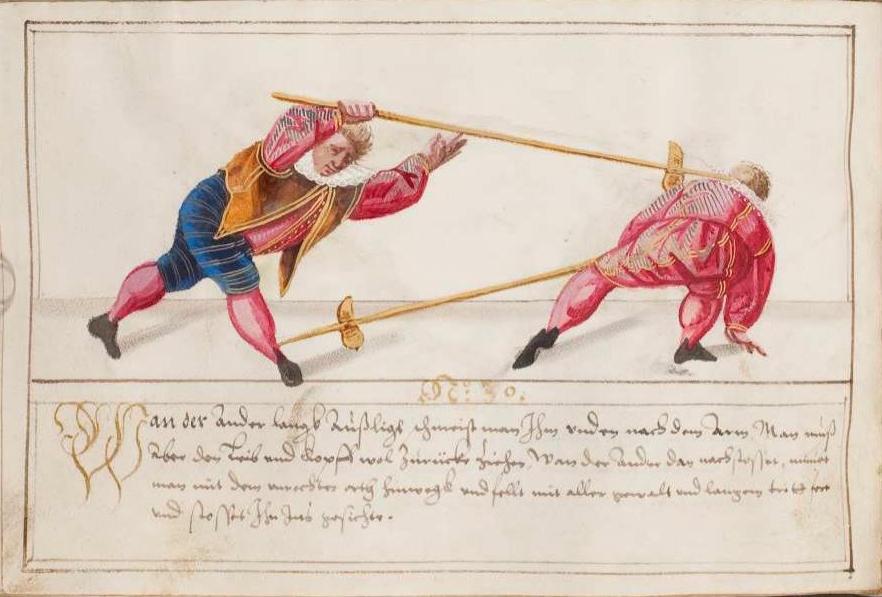 No: 30.
Wan der Ander langk Außligt, schmeist man Ihm unden nach dem Arm, Man muß
Aber den Leib und Kopff wol Zurücke ziehen, Wan der Ander dan nachstosset, nimmt
man mit dem unrechten orth hinwegk und fellt mit aller gewalt und langem tritt
und stosset Ihn Ins gesichte.